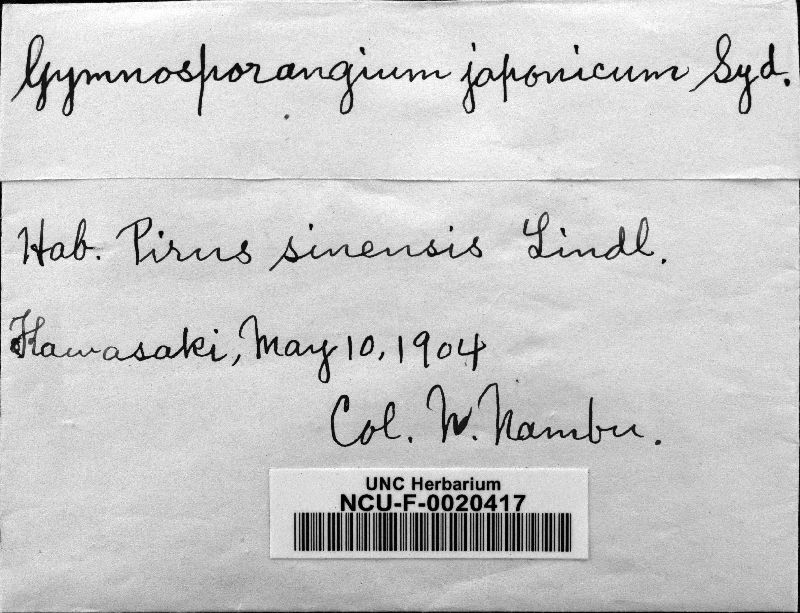 Gymnosporangium japonicum Syd.
Hab. Pirus sinensis Lindl.
Kawasaki, May 10, 1904
Col. N. Nambu.
UNC Herbarium
NCU-F-0020417